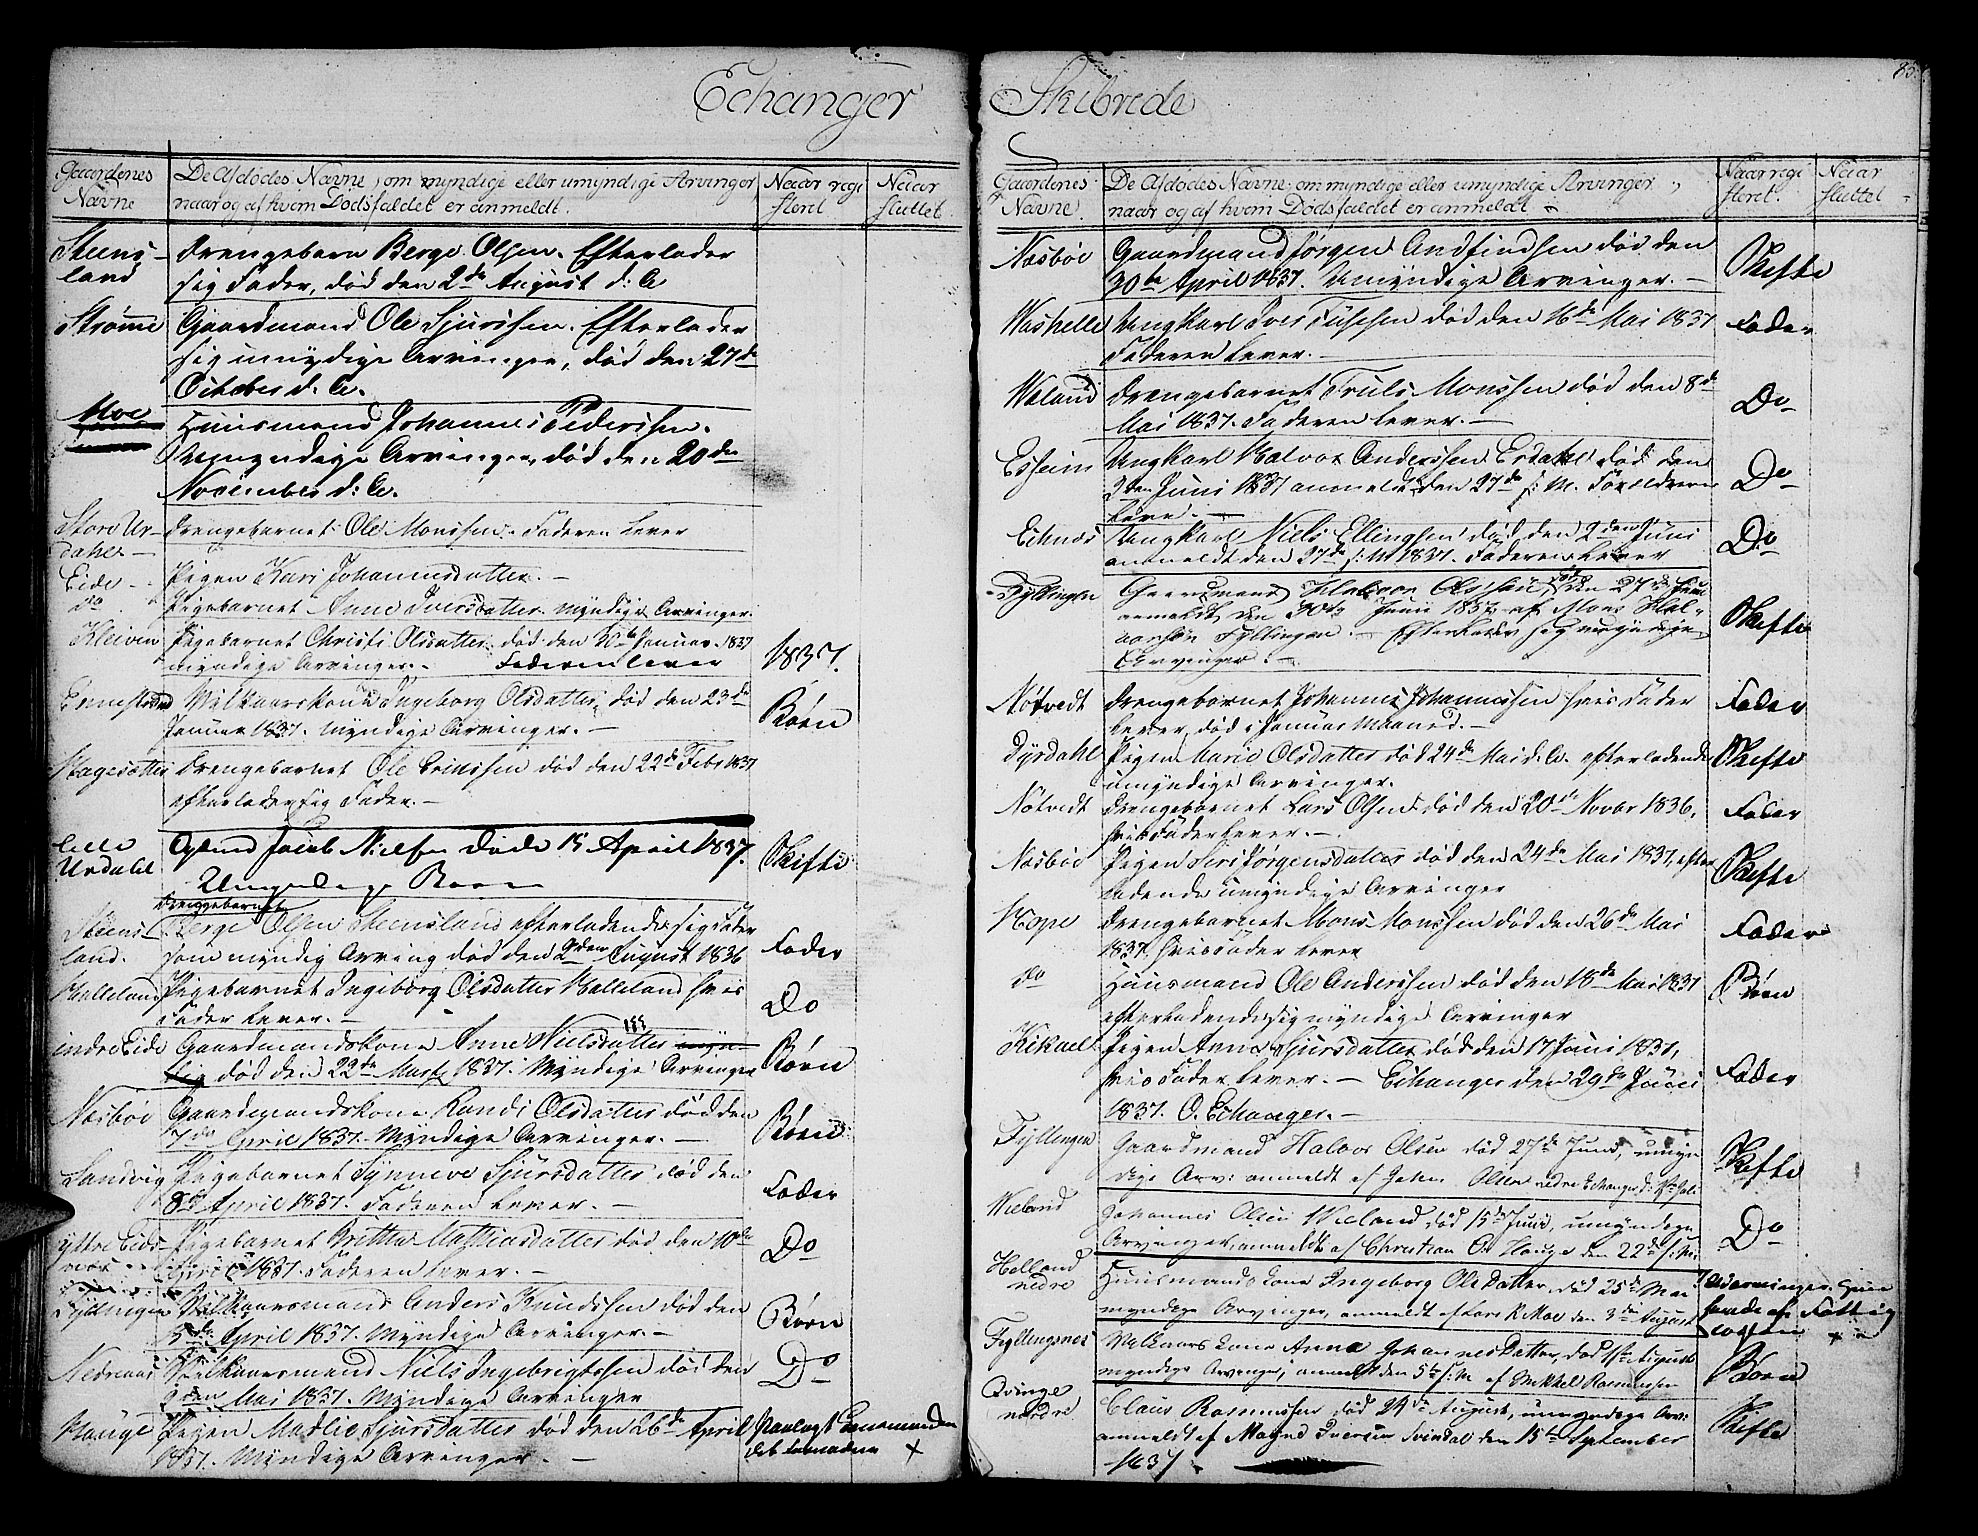 Echanger Skibrede
85.
Gaardenes Navne
De Afdødes Navne, om myndige eller umyndige Arvinger, naar og af hvem Dødsfaldet er anmeldt.
Naar registeret
Naar sluttet
Steensland
Drengebarn Berge Olsen. Efterlader
sig Fader, død den 2de August d: A.
Strømme
Gaardmand Ole Sjursen. Efterlader
sig umyndige Arvinger, død den 27de
October d: A.
Moe
Huusmand Johannes Pedersen.
Umyndige Arvinger, død den 20de
November d: A.
Store Urdahl
Drengebarnet Ole Monsen. Faderen lever
Eide
Pigen Kari Johannesdatter. —
do
Pigebarnet Anne Iversdatter. myndige Arvinger.
Kleiven
Pigebarnet Christi Olsdatter, død den Januar 1837
myndige Arvinger. Faderen lever
1837.
Vilkaarskone Ingeborg Olsdatter død den 23de
Januar 1837. Myndige Arvinger. —
Børn
Drengebarnet Ole død den 22de Febr 1837
efterlader sig Fader. —
Lille Urdahl
Jacob Nielsen døde 15 April 1837.
Umyndige Børn
Skifte
Steensland.
Drengebarnet
Berge Olsen Steensland efterladende sig Fader
som myndig Arving død den 2den August 1836
Fader
Halleland
Pigebarnet Ingeborg Olsdatter Halleland hvis
Fader lever. —
Do
indre Eide
Gaardmandskone Anne Nielsdatter
død den 22de Marts 1837. Myndige Arvinger
Børn
Næsbøe
Gaardmandskone Randi Olsdatter død den
7de April 1837. Myndige Arvinger. —
Børn
Sandvig
Pigebarnet Synneve Sjursdatter død den
8de April 1837. Faderen lever. —
Fader
Pigebarnet Brithe Mathiasdatter død den 10de
April 1837. Faderen lever. —
Do
Fyllingen
Vilkaarsmand Anders Knudsen død den
15de April 1837. Myndige Arvinger. —
Børn
Vilkaarsmand Niels Ingebrigtsen død den
Mai 1837. Myndige Arvinger
Do
Hauge
Pigen Madlie Sjursdatter død den 26de April
1837. Myndige Arvinger. —
Gaardenes Navne.
De Afdødes Navne, om myndige eller umyndige Arvinger,
naar og af hvem Dødsfaldet er anmeldt
Naar registeret.
Naar sluttet
Næsbøe
Gaardmand Jørgen Andfindsen død den
30te April 1837. Umyndige Arvinger. —
Skifte
Ungkarl Iver død den 16de Mai 1837
Faderen lever. —
Fader
Waland
Drengebarnet Truls Monsen død den 8de
Mai 1837. Faderen lever. —
Do
Ungkarl Halvor Andersen død den
Juni 1837 anmeldt den 27de s: M. Forældrene
leve. —
Do
Echnæs
Ungkarl Niels Ellingsen død den 2den Juni
anmeldt den 27de s: M 1837. Faderen lever
Do
Fyllingen
Gaardmand Halvor Olsen død den 27de Juni
anmeldt den 30te Juni 1837 af Mons Hal-
vorsen Fyllingen. — Efterlader sig umyndige
Arvinger. —
Skifte
Nøtvedt
Drengebarnet Johannes Johannesen hvis Fader
lever, død i Januar Maaned. —
Fader
Dyrdahl
Pigen Marie Olsdatter død 24de Mai d: A. efterladende
umyndige Arvinger.
Skifte
Nøtvedt
Drengebarnet Lars Olsen død den 20de Novbr 1836,
hvis Fader lever. —
Fader
Næsbøe
Pigen Siri Jørgensdatter død den 24de Mai 1837, efter
ladende umyndige Arvinger
Skifte
Hope
Drengebarnet Mons Monsen død den 26de Mai
1837. hvis Fader lever
Fader
do
Huusmand Ole Andersen død den 18de Mai 1837
efterladende sig myndige Arvinger
Børn
Pigen Anna Sjursdatter død den 17 Juni 1837,
hvis Fader lever. — Echanger den 29de Juni
1837. O. Echanger. —
Fader
Fyllingen
Gaardmand Halvor Olsen død 27de Juni, umyn
dige Arv: anmeldt af John Olsen nedre Echanger d:
Skifte
Wieland
Johannes Olsen Wieland død 15de Juni, umyndige
Arvinger, anmeldt af Christian O. Hauge den 22de s: M:
Do
Helland nedre
Huusmandskone Ingeborg Ole Datter, død 25de Mai
myndige Arvinger, anmeldt af Lars R. Moe den 3die August
Fyllingsnes
Vilkaarskone Anna Johannes Datter, død August
myndige Arvinger, anmeldt den 5te s: M af Mikkel Rasmussen
Børn
Qvinge nordre
Claus Rasmussen død 24de August, umyndige Arv:
anmeldt af Magne Iversen Svindal den 15te September
1837
Skifte